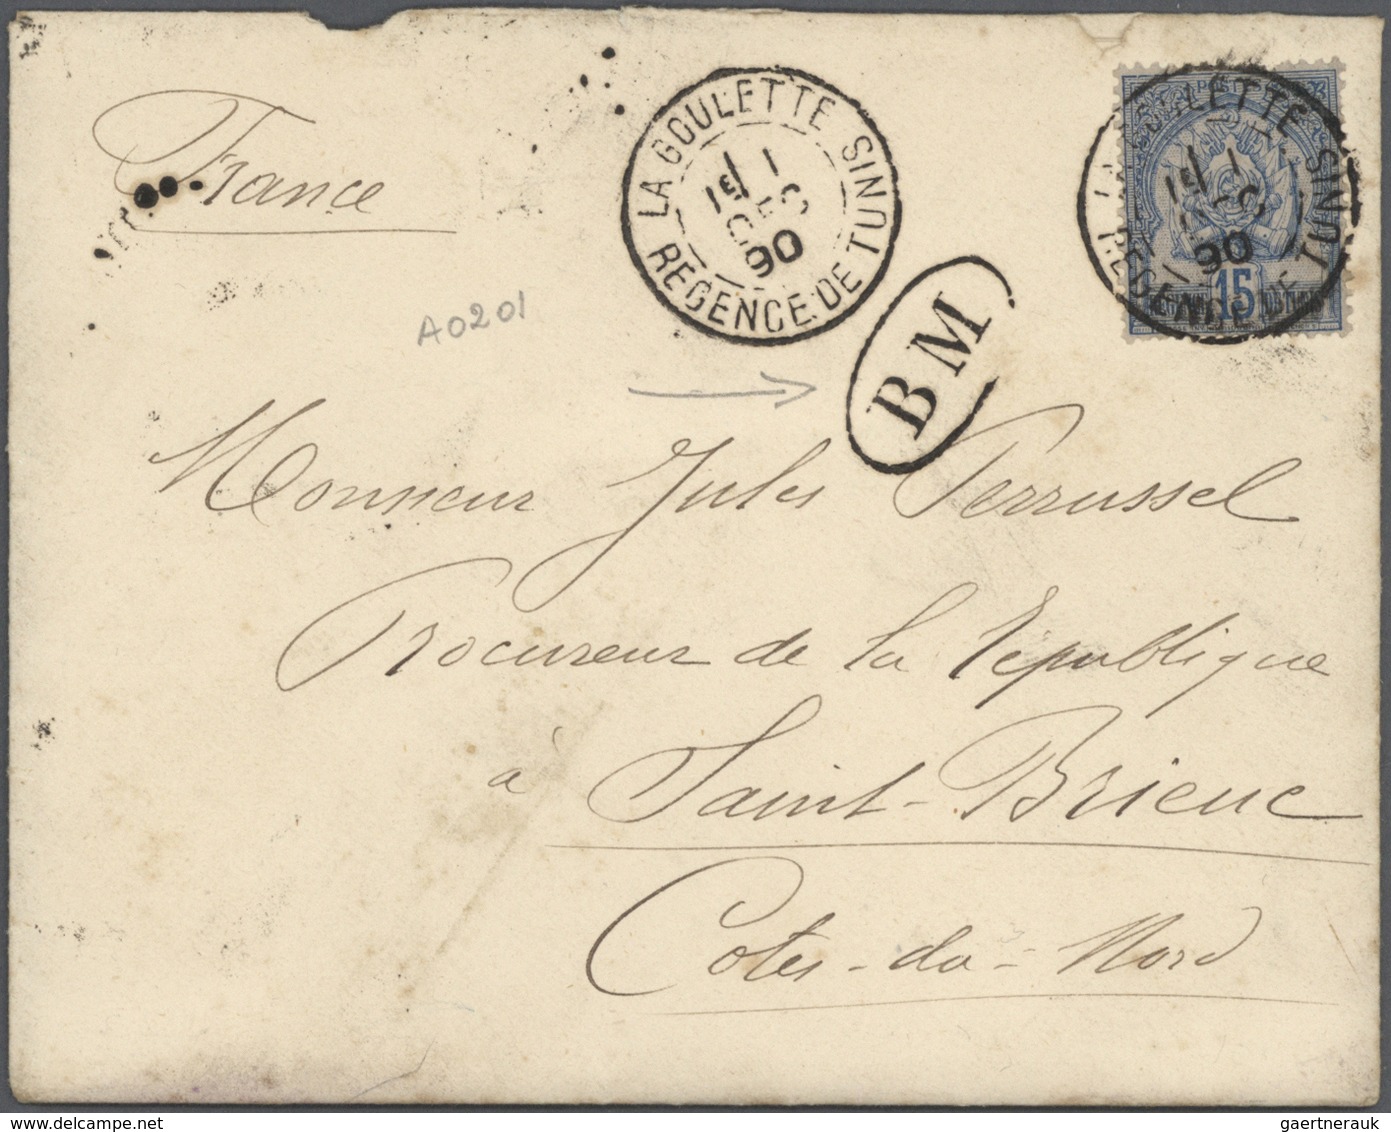 France
LA GOULETTE
1
DEC
90
REGENCE DE TUNIS
LA GOULETTE
90
REGENCE DE TUNIS
15
A0201
BM
Monsieur Jules Perrussel
Procureur de la République
à Saint-Brieuc
Cotes-du-Nord
gaertnerauk